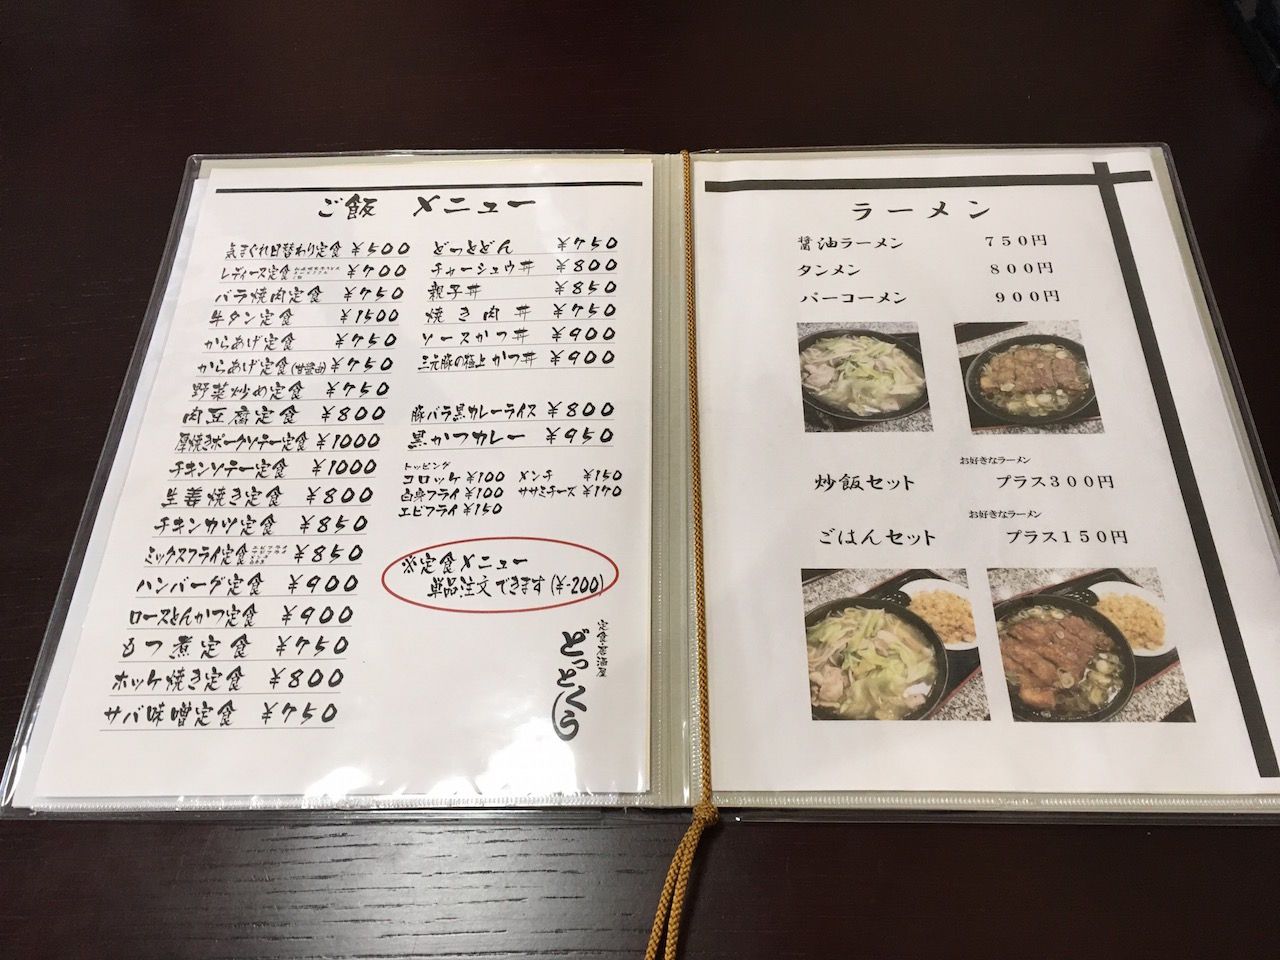 ご飯 メニュー
気まぐれ日替わり定食 ¥500
レディース定食 ¥700
バラ焼肉定食 ¥750
牛タン定食 ¥1500
からあげ定食 ¥750
からあげ定食(甘醤油) ¥750
野菜炒め定食 ¥750
肉豆腐定食 ¥800
厚焼きポークソテー定食 ¥1000
チキンソテー定食 ¥1000
生姜焼き定食 ¥800
チキンカツ定食 ¥850
ミックスフライ定食 ¥850
ハンバーグ定食 ¥900
ロースとんかつ定食 ¥900
もつ煮定食 ¥750
ホッケ焼き定食 ¥800
サバ味噌定食 ¥750
どっとどん ¥750
チャーシュウ丼 ¥800
親子丼 ¥850
焼き肉丼 ¥750
ソースかつ丼 ¥900
三元豚の極上かつ丼 ¥900
豚バラ黒カレーライス ¥800
黒かつカレー ¥950
トッピング
コロッケ ¥100 メンチ ¥150
白身フライ ¥100 ササミチーズ ¥170
エビフライ ¥150
※定食メニュー
単品注文できます(¥-200)
定食居酒屋
どっとくう
ラーメン
醤油ラーメン 750円
タンメン 800円
パーコーメン 900円
お好きなラーメン
炒飯セット プラス300円
お好きなラーメン
ごはんセット プラス150円